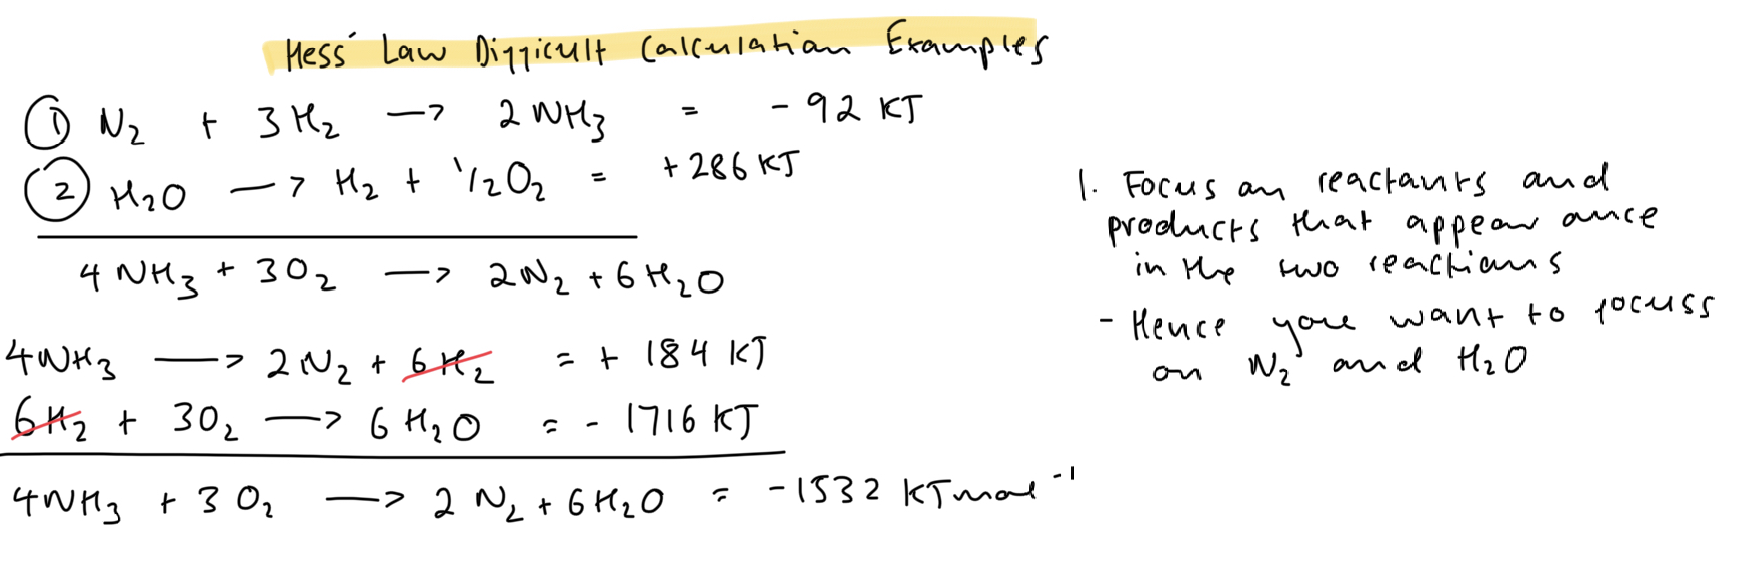 Hess' Law Difficult Calculation Examples
① N₂ + 3H₂ → 2NH₃ = -92 KJ
② H₂O → H₂ + 1/2O₂ = +286 KJ
4NH₃ + 3O₂ → 2N₂ + 6H₂O
4NH₃ → 2N₂ + 6H₂ = + 184 KJ
6H₂ + 3O₂ → 6H₂O = - 1716 KJ
4NH₃ + 3O₂ → 2N₂ + 6H₂O = -1532 KJmol⁻¹
1. Focus on reactants and
products that appear once
in the two reactions
- Hence you want to focuss
on N₂ and H₂O